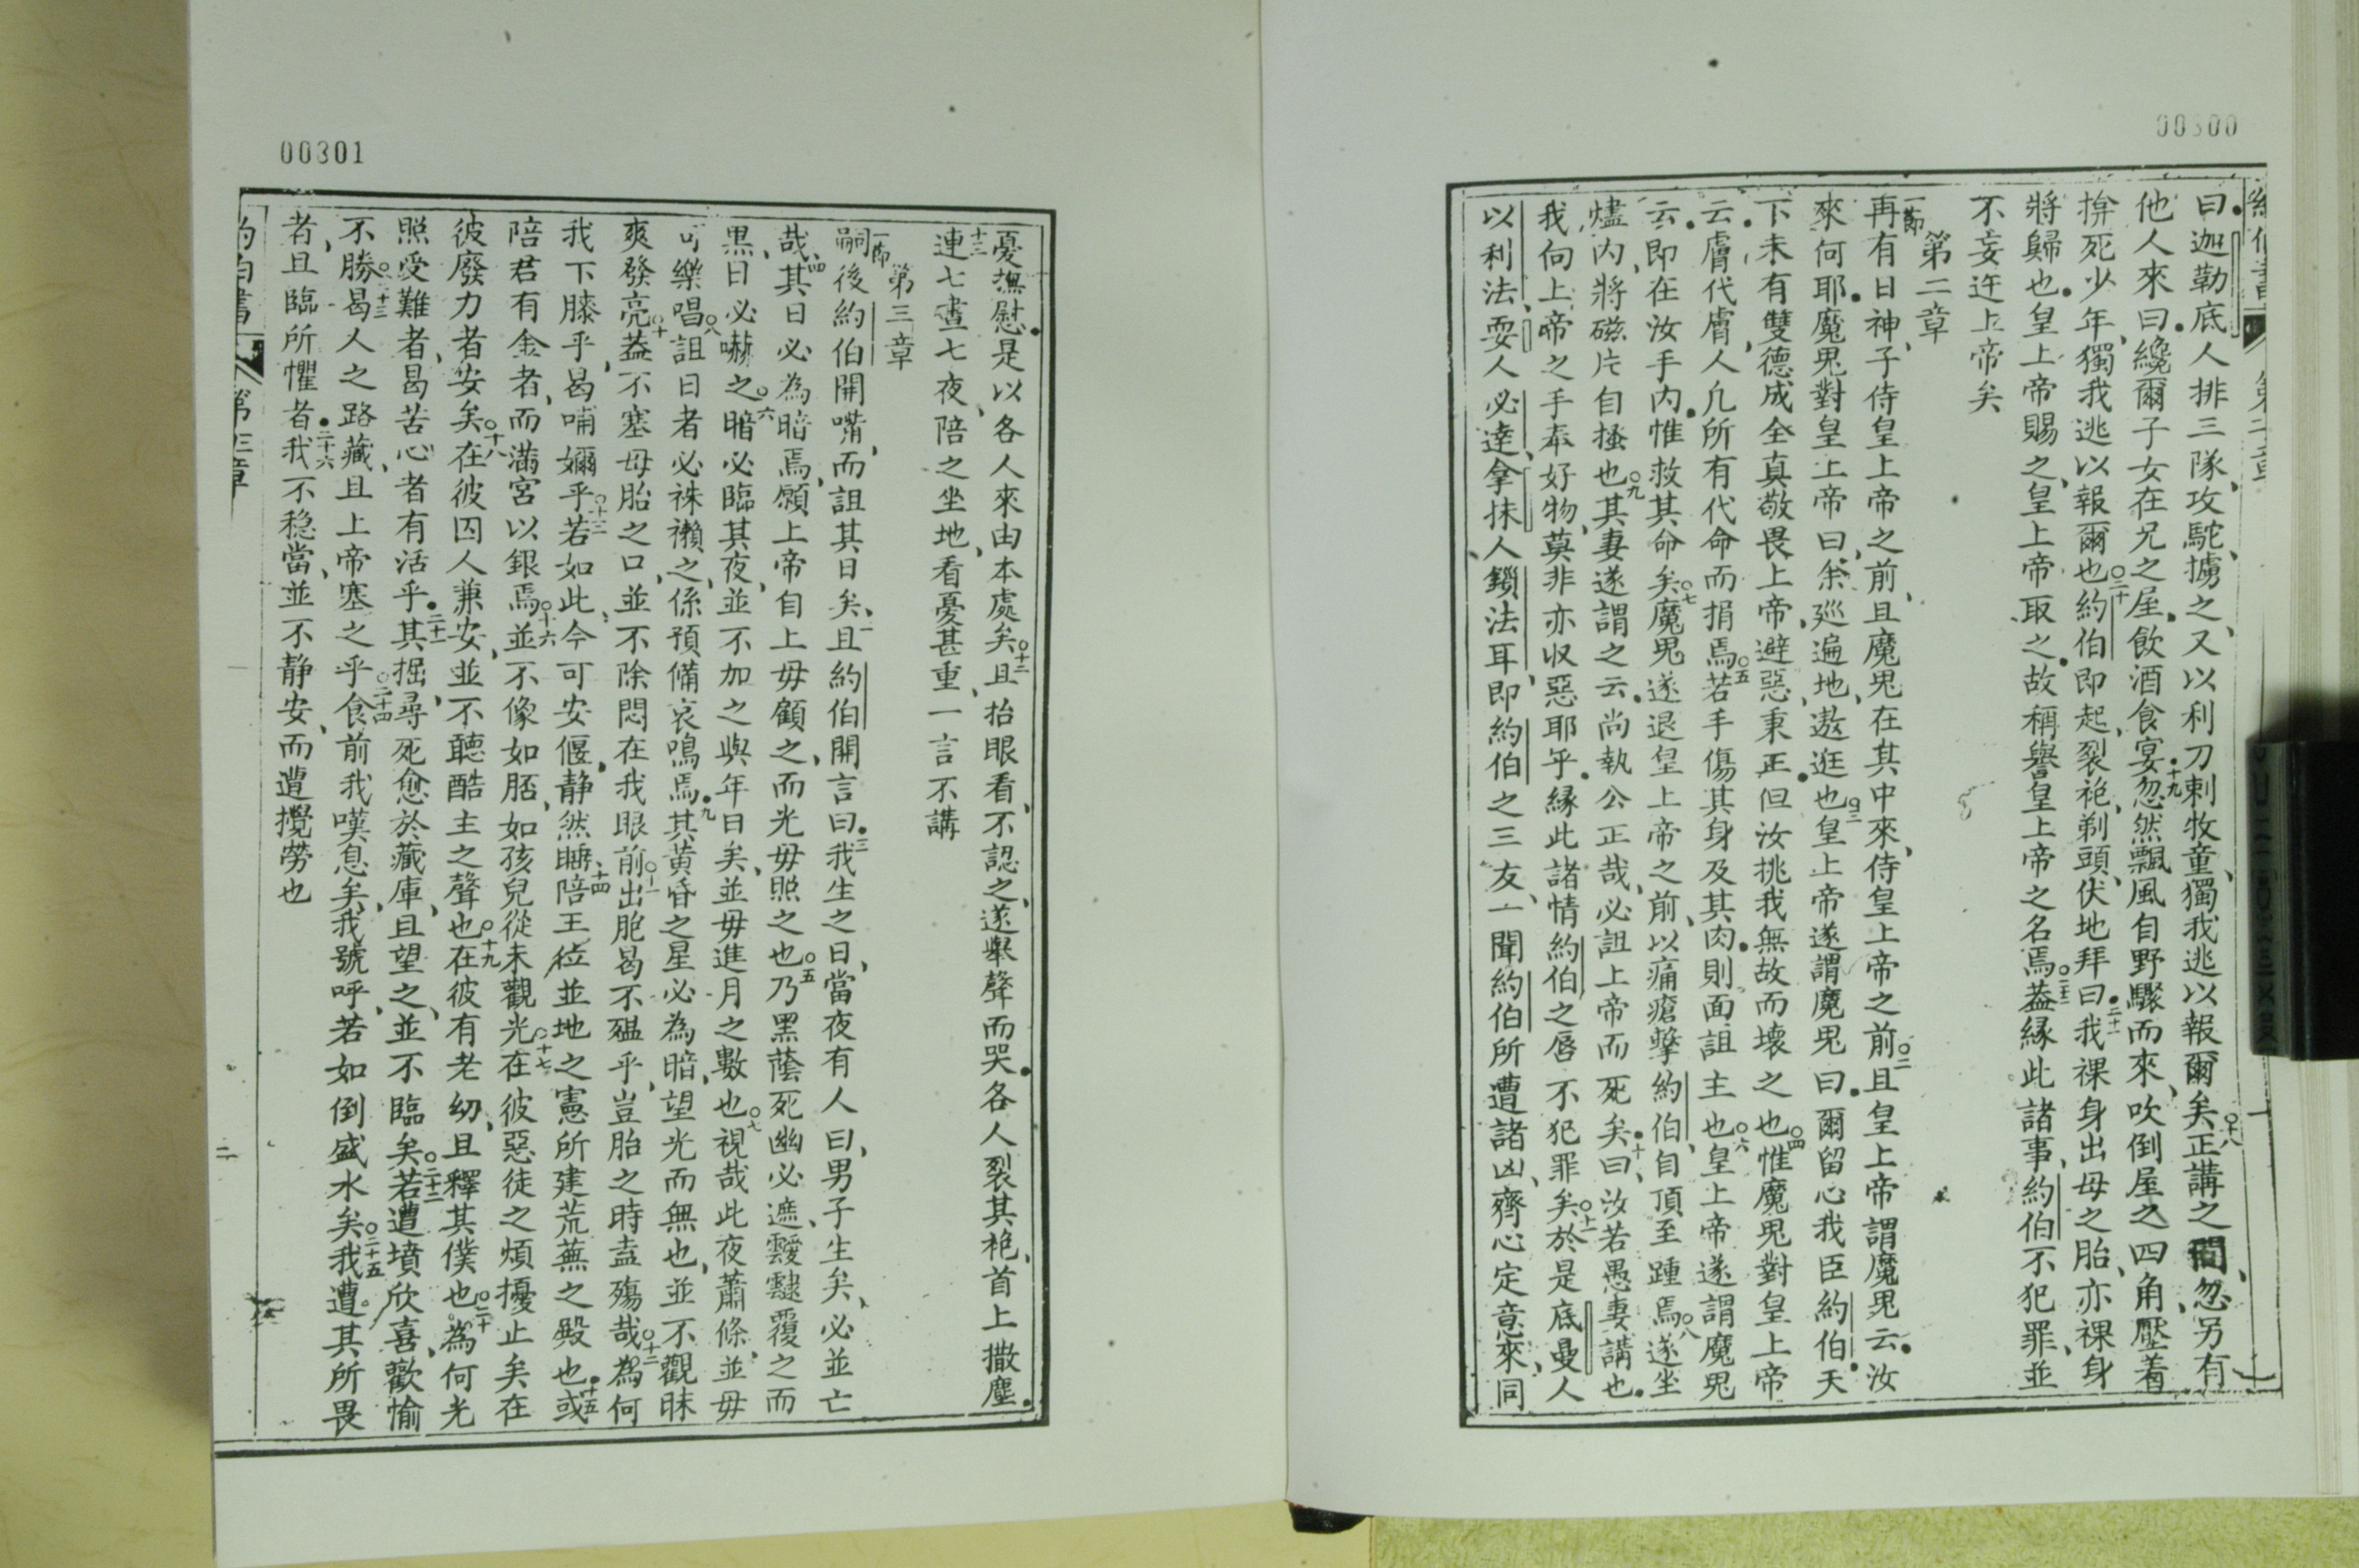 00300
曰迦勒底人排三隊攻駝擄之又以利刀刺牧童獨我逃以報爾矣○十八正講之間忽另有
他人來曰纔爾子女在兄之屋飲酒食宴十九忽然飄風自野驟而來吹倒屋之四角壓着
捹死少年獨我逃以報爾也○二十約伯即起裂袍剃頭伏地拜曰二十一我裸身出母之胎亦裸身
將歸也皇上帝賜之皇上帝取之故稱譽皇上帝之名焉○二十二葢緣此諸事約伯不犯罪並
不妄迕上帝矣
第二章
一節再有日神子侍皇上帝之前且魔鬼在其中來侍皇上帝之前○二且皇上帝謂魔鬼云汝
來何耶魔鬼對皇上帝曰余巡遍地遨逛也○三皇上帝遂謂魔鬼曰爾留心我臣約伯天
下未有雙德成全真敬畏上帝避惡秉正但汝挑我無故而壞之也○四惟魔鬼對皇上帝
云膚代膚人凡所有代命而捐焉○五若手傷其身及其肉則面詛主也○六皇上帝遂謂魔鬼
云即在汝手內惟救其命矣○七魔鬼遂退皇上帝之前以痛瘡擊約伯自頂至踵焉○八遂坐
燼內將磁片自搔也○九其妻遂謂之云尚執公正哉必詛上帝而死矣十曰汝若愚妻講也
我向上帝之手奉好物莫非亦收惡耶乎緣此諸情約伯之唇不犯罪矣○十一於是底曼人
以利法耍人必達拿抹人鎖法耳即約伯之三友一聞約伯所遭諸凶齊心定意來同
00301
憂撫慰是以各人來由本處矣○十二且抬眼看不認之遂舉聲而哭各人裂其袍首上撒塵
十三連七晝七夜陪之坐地看憂甚重一言不講
第三章
一節嗣後約伯開嘴而詛其日矣二且約伯開言曰三我生之日當夜有人曰男子生矣必並亡
哉四其日必為暗焉願上帝自上毋顧之而光毋照之也○五乃黑蔭死幽必遮靉靆覆之而
黑日必嚇之○六暗必臨其夜並不加之與年日矣並毋進月之數也○七視哉此夜蕭條並毋
可樂唱○八詛日者必祩襰之係預備哀鳴焉九其黃昏之星必為暗望光而無也並不觀昧
爽發亮○十葢不塞母胎之口並不除悶在我眼前○十一出胞曷不殟乎豈胎之時盍殤哉○十二為何
我下膝乎曷哺嬭乎○十三若如此今可安偃靜然睡十四陪王位並地之憲所建荒蕪之殿也十五或
陪君有金者而滿宮以銀焉○十六並不像如胚如孩兒從未觀光○十七在彼惡徒之煩擾止矣在
彼廢力者安矣○十八在彼囚人兼安並不聽酷主之聲也○十九在彼有老幼且釋其僕也○二十為何光
照受難者曷苦心者有活乎二十一其掘尋死愈於藏庫且望之並不臨矣○二十二若遭墳欣喜歡愉
不勝○二十三曷人之路藏且上帝塞之乎○二十四食前我嘆息矣我號呼若如倒盛水矣○二十五我遭其所畏
者且臨所懼者二十六我不穩當並不靜安而遭攪勞也
約伯書 第三章
二